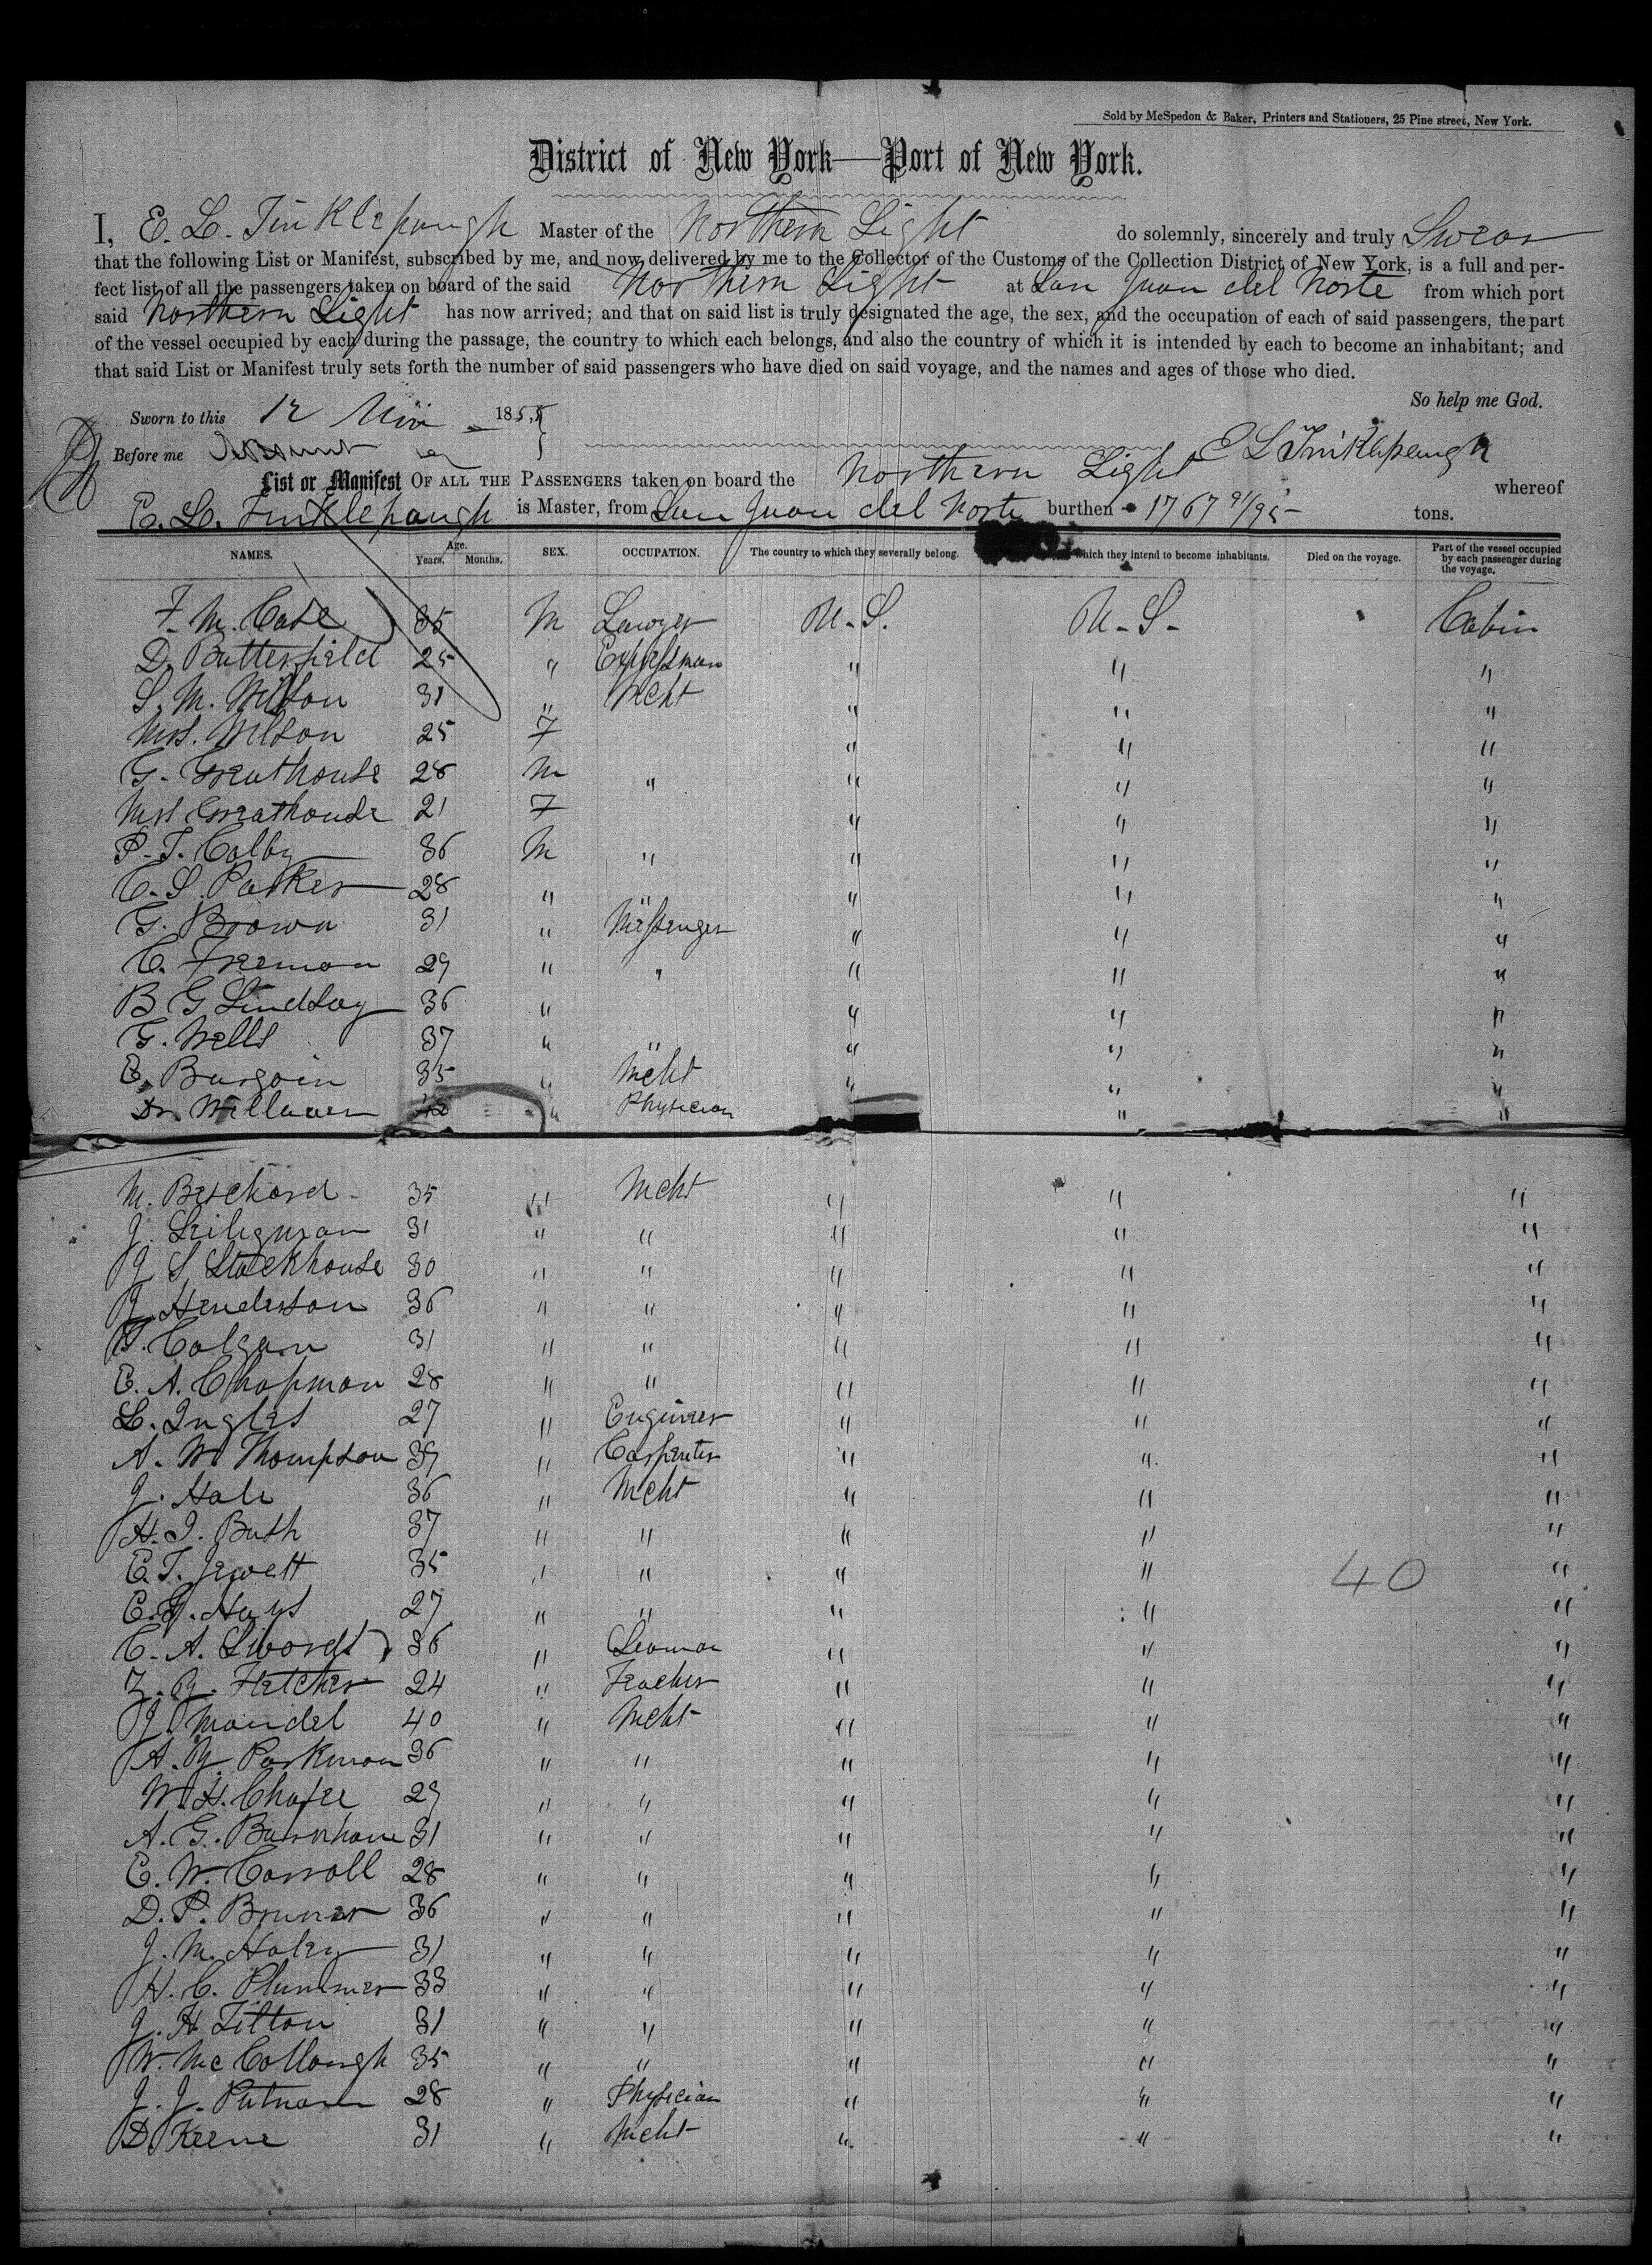 Sold by McSpedon & Baker, Printers and Stationers, 25 Pine street, New York.
District of New York—Port of New York.
I, E. L. Tinklepaugh Master of the Northern Light do solemnly, sincerely and truly Swear
that the following List or Manifest, subscribed by me, and now delivered by me to the Collector of the Customs of the Collection District of New York, is a full and per-
fect list of all the passengers taken on board of the said Northern Light at San Juan del Norte from which port
said Northern Light has now arrived; and that on said list is truly designated the age, the sex, and the occupation of each of said passengers, the part
of the vessel occupied by each during the passage, the country to which each belongs, and also the country of which it is intended by each to become an inhabitant; and
that said List or Manifest truly sets forth the number of said passengers who have died on said voyage, and the names and ages of those who died.
So help me God.
Sworn to this 12 185
Before me
E L Tinklepaugh
List or Manifest OF ALL THE PASSENGERS taken on board the Northern Light whereof
E. L. Tinklepaugh is Master, from San Juan del Norte burthen 1767 91/95 tons.
NAMES. Age. Years. Months. SEX. OCCUPATION. The country to which they severally belong. which they intend to become inhabitants. Died on the voyage. Part of the vessel occupied by each passenger during the voyage.
F. M. Case 35 M Lawyer U.S. U.S. Cabin
D. Butterfield 25 " Expressman " " "
S. M. Wilson 31 " Mcht " " "
Mrs. Wilson 25 F " " "
G. Greathouse 28 M " " " "
Mrs Greathouse 21 F " " "
P. T. Colby 36 M " " " "
C. S. Parker 28 " " " " "
G. Brown 31 " Messenger " " "
C. Freeman 29 " " " " "
B G Lindsay 36 " " " "
G. Wells 37 " " " " "
E. Burgoin 35 " Mcht " " "
Dr. " Physician " "
M. 35 " Mcht " " "
J. 31 " " " " "
J S Stackhouse 30 " " " " "
J. Henderson 36 " " " " "
T. Colgan 31 " " " " "
E. A. Chapman 28 " " " " "
L. Ingles 27 " Engineer " " "
A. W. Thompson 39 " Carpenter " " "
J. Hale 36 " Mcht " " "
H. I. Bush 37 " " " " "
E. T. Jewett 35 " " " " 40 "
C. J. Hays 27 " " " " "
C. A. Swords 36 " Seaman " " "
Z. Y. Fletcher 24 " Teacher " " "
J. Mandel 40 " Mcht " " "
A. Y. Parkman 36 " " " " "
W. H. Chafee 29 " " " " "
A. G. 31 " " " " "
E. W. Carroll 28 " " " " "
D. P. Bruner 36 " " " " "
J. M. Haley 31 " " " " "
H. C. Plummer 33 " " " " "
J. H. Tilton 31 " " " " "
W. McCollough 35 " " " " "
J. J. Putnam 28 " Physician " " "
D. Keene 31 " Mcht " " "